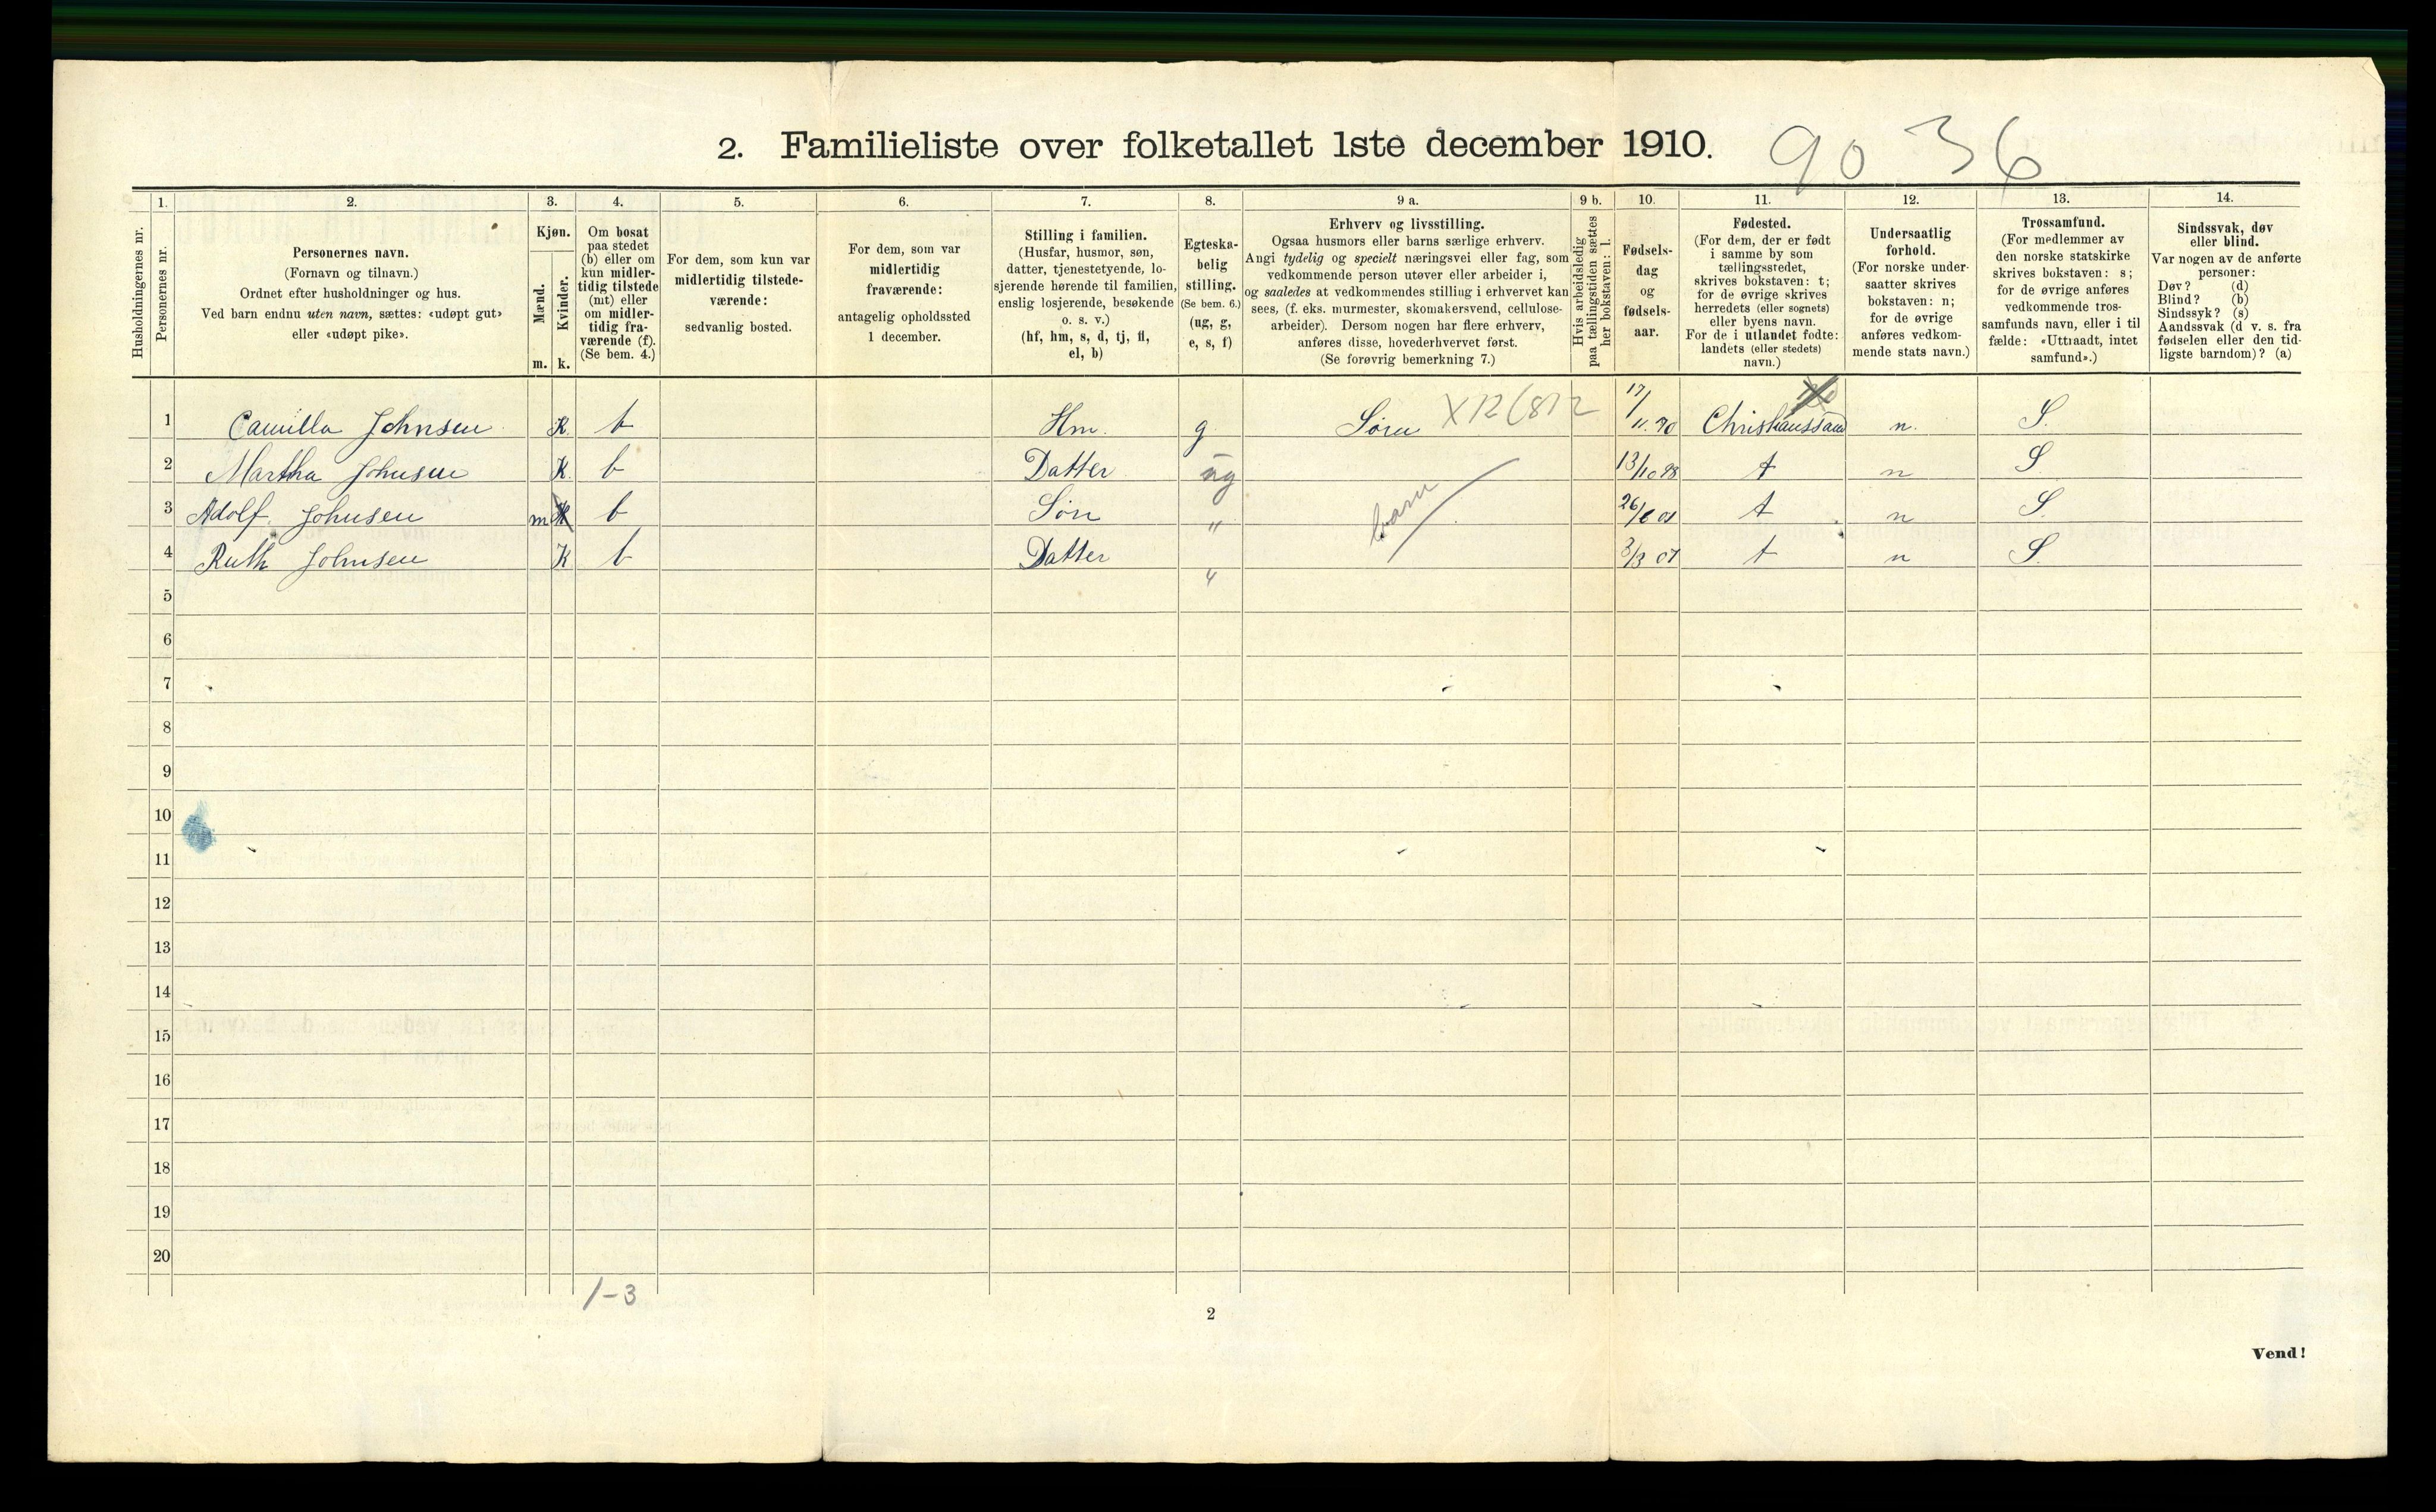 2. Familieliste over folketallet 1ste december 1910. 90 36
Husholdningernes nr.
1.
Personernes nr.
2.
Personernes navn.
(Fornavn og tilnavn.)
Ordnet efter husholdninger og hus.
Ved barn endnu uten navn, sættes: «udøpt gut»
eller «udøpt pike».
3.
Kjøn.
Mænd.
Kvinder.
m. k.
4.
Om bosat
paa stedet
(b) eller om
kun midler-
tidig tilstede
(mt) eller
om midler-
tidig fra-
værende (f).
(Se bem. 4.)
5.
For dem, som kun var
midlertidig tilstede-
værende:
sedvanlig bosted.
6.
For dem, som var
midlertidig
fraværende:
antagelig opholdssted
1 december.
7.
Stilling i familien.
(Husfar, husmor, søn,
datter, tjenestetyende, lo-
sjerende hørende til familien,
enslig losjerende, besøkende
o. s. v.)
(hf, hm, s, d, tj, fl,
el, b)
8.
Egteska-
belig
stilling.
(Se bem. 6.)
(ug, g,
e, s, f)
9 a.
Erhverv og livsstilling.
Ogsaa husmors eller barns særlige erhverv.
Angi tydelig og specielt næringsvei eller fag, som
vedkommende person utøver eller arbeider i,
og saaledes at vedkommendes stilling i erhvervet kan
sees, (f. eks. murmester, skomakersvend, cellulose-
arbeider). Dersom nogen har flere erhverv,
anføres disse, hovederhvervet først.
(Se forøvrig bemerkning 7.)
9 b.
Hvis arbeidsledig
paa tællingstiden sættes
her bokstaven: l.
10.
Fødsels-
dag
og
fødsels-
aar.
11.
Fødested.
(For dem, der er født
i samme by som
tællingsstedet,
skrives bokstaven: t;
for de øvrige skrives
herredets (eller sognets)
eller byens navn.
For de i utlandet fødte:
landets (eller stedets)
navn.)
12.
Undersaatlig
forhold.
(For norske under-
saatter skrives
bokstaven: n;
for de øvrige
anføres vedkom-
mende stats navn.)
13.
Trossamfund.
(For medlemmer av
den norske statskirke
skrives bokstaven: s;
for de øvrige anføres
vedkommende tros-
samfunds navn, eller i til
fælde: «Uttraadt, intet
samfund».)
14.
Sindssvak, døv
eller blind.
Var nogen av de anførte
personer:
Døv? (d)
Blind? (b)
Sindssyk? (s)
Aandssvak (d v. s. fra
fødselen eller den tid-
ligste barndom)? (a)
1 Camilla Johnsen K. b Hm. g X12(812 17/11. 70 Christianssand n. S.
2 Martha Johnsen K. b Datter ug 13/10 98 t n S
3 Adolf Johnsen m b Søn " barn 26/6 01 t n S.
4 Ruth Johnsen K b Datter " 3/3 07 t n S.
5
6
7
8
9
10
11
12
13
14
15
16
17
18
19
20
1-3
2
Vend!